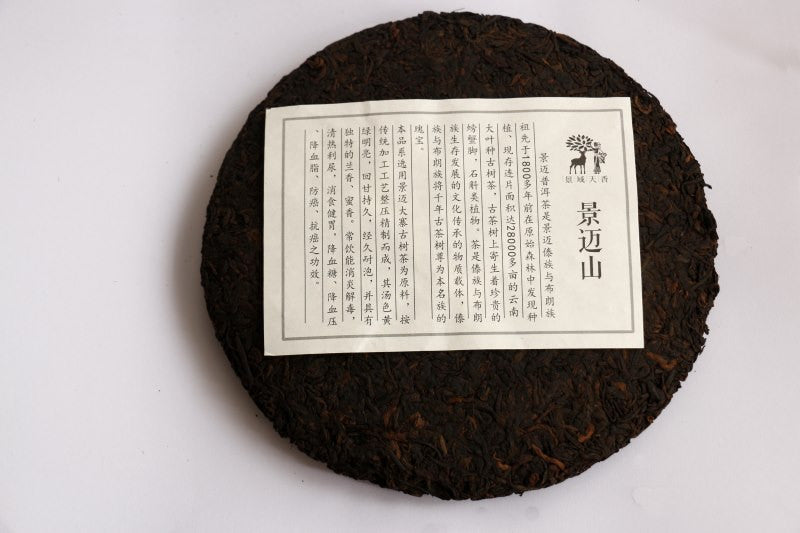 景域大香
景迈山
景迈普洱茶是景迈傣族与布朗族
祖先于1800多年前在原始森林中发现种
植、现存连片面积达28000多亩的云南
大叶种古树茶，古茶树上寄生着珍贵的
螃蟹脚，石斛类植物。茶是傣族与布朗
族生存发展的文化传承的物质载体，傣
族与布朗族将千年古茶树尊为本名族的
瑰宝。
本品系选用景迈大寨古树茶为原料，按
传统加工工艺整压精制而成，其汤色黄
绿明亮，回甘持久，经久耐泡，并具有
独特的兰香、蜜香。常饮能消炎解毒，
清热利尿，消食健胃，降血糖、降血压
、降血脂、防癌、抗癌之功效。